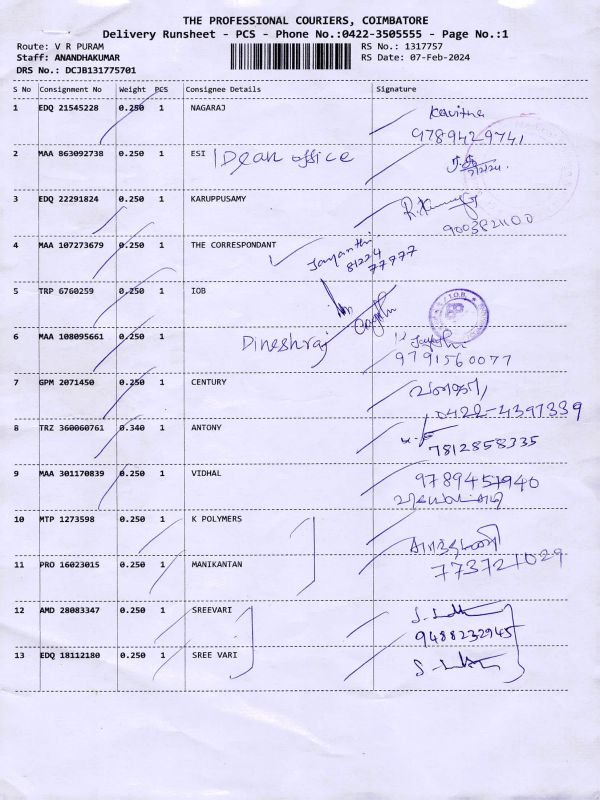 THE PROFESSIONAL COURIERS, COIMBATORE
Delivery Runsheet - PCS - Phone No.:0422-3505555 - Page No.:1
Route: V R PURAM
RS No.: 1317757
Staff: ANANDHAKUMAR
RS Date: 07-Feb-2024
DRS No.: DCJB131775701
S No Consignment No Weight PCS Consignee Details Signature
1 EDQ 21545228 0.250 1 NAGARAJ Kavitha
9789429741
2 MAA 863092738 0.250 1 ESI Dean office
3 EDQ 22291824 0.250 1 KARUPPUSAMY
9003821100
4 MAA 107273679 0.250 1 THE CORRESPONDANT Jayanthi
81224
77777
5 TRP 6760259 0.250 1 IOB
6 MAA 108095661 0.250 1 Dineshraj
9791560077
7 GPM 2071450 0.250 1 CENTURY
0422-4397339
8 TRZ 360060761 0.340 1 ANTONY
7812858335
9 MAA 301170839 0.250 1 VIDHAL 9789451940
10 MTP 1273598 0.250 1 K POLYMERS
11 PRO 16023015 0.250 1 MANIKANTAN 7737271029
12 AMD 28083347 0.250 1 SREEVARI
9488232945
13 EDQ 18112180 0.250 1 SREE VARI